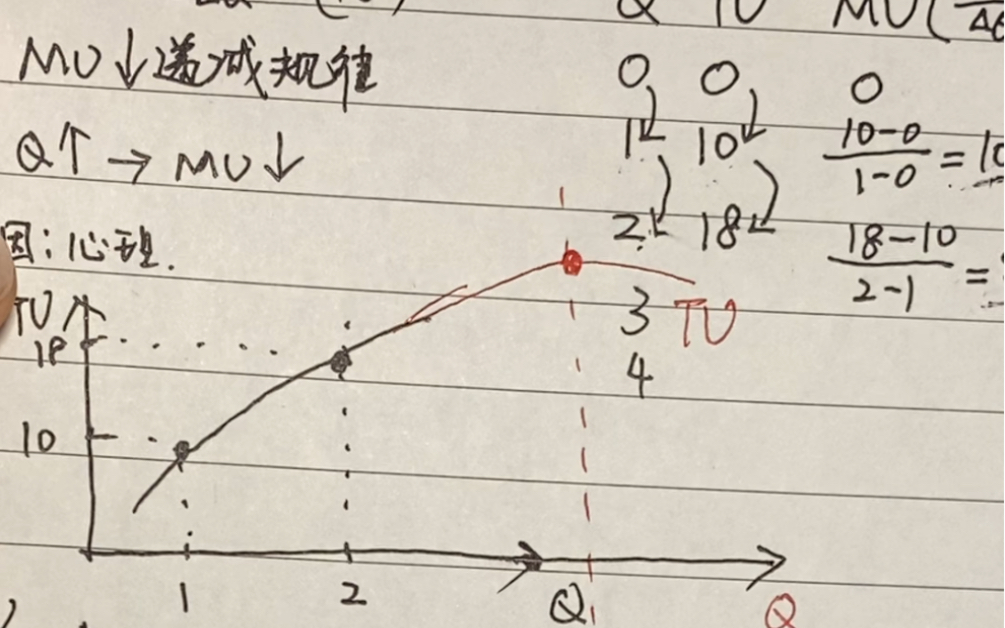 Q TU MU(
MU↓递减规律
0 0 0
Q↑ → MU↓
1 10 10-0/1-0 = 10
2 18 18-10/2-1 =
因:心理.
3
4
TU
TU
18
10
1 2 Q1 Q